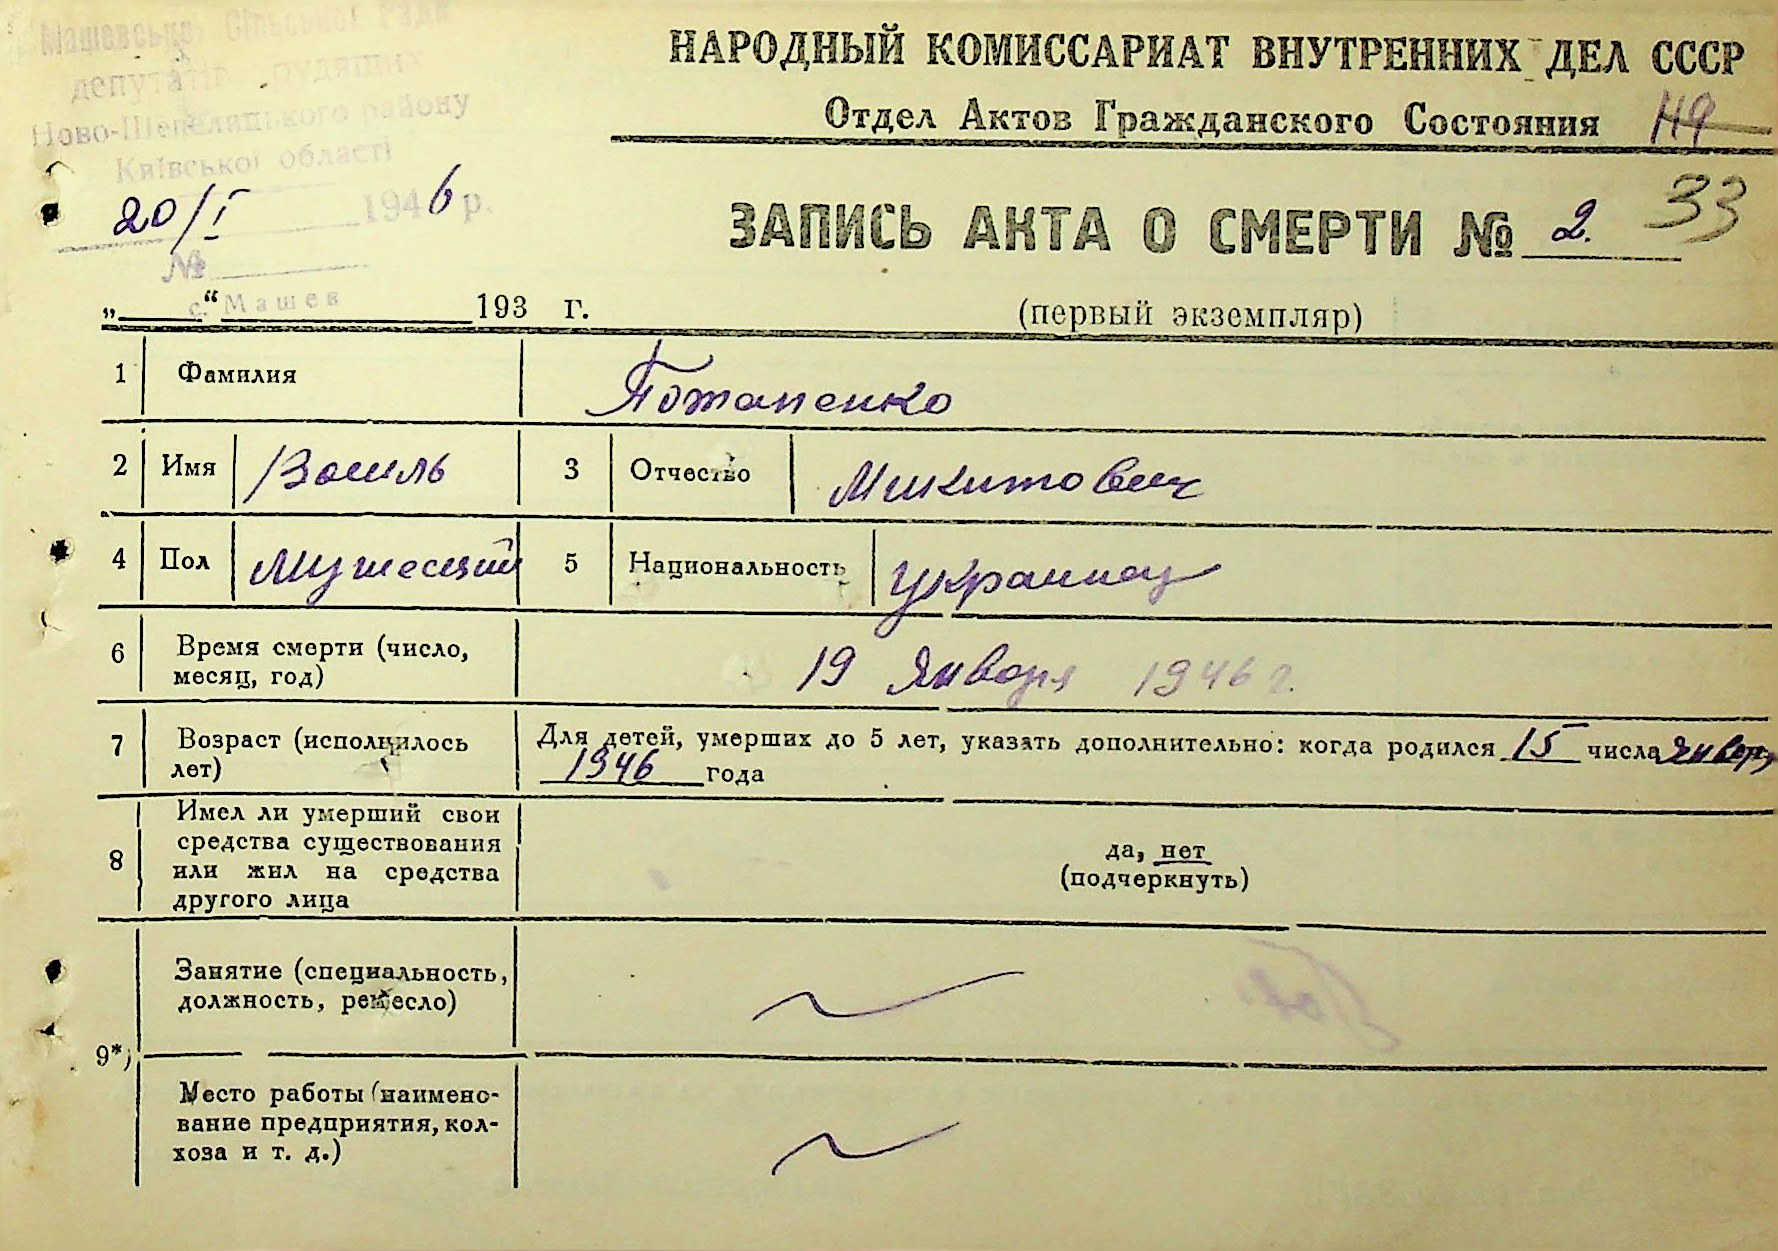 Машевської Сільської Ради
депутатів трудящих
Ново-Шепелицького району
Київської області
20/I 1946 р.
№
с. Машев
НАРОДНЫЙ КОМИССАРИАТ ВНУТРЕННИХ ДЕЛ СССР
Отдел Актов Гражданского Состояния
ЗАПИСЬ АКТА О СМЕРТИ № 2. 33
„ “ 193 г.
(первый экземпляр)
1 Фамилия Потапенко
2 Имя Василь 3 Отчество Микитович
4 Пол Мужеский 5 Национальность украинец
6 Время смерти (число, месяц, год) 19 января 1946 г.
7 Возраст (исполнилось лет) Для детей, умерших до 5 лет, указать дополнительно: когда родился 15 числа января
1946 года
8 Имел ли умерший свои
средства существования
или жил на средства
другого лица
да, нет
(подчеркнуть)
9*)
Занятие (специальность,
должность, ремесло)
Место работы (наимено-
вание предприятия, кол-
хоза и т. д.)